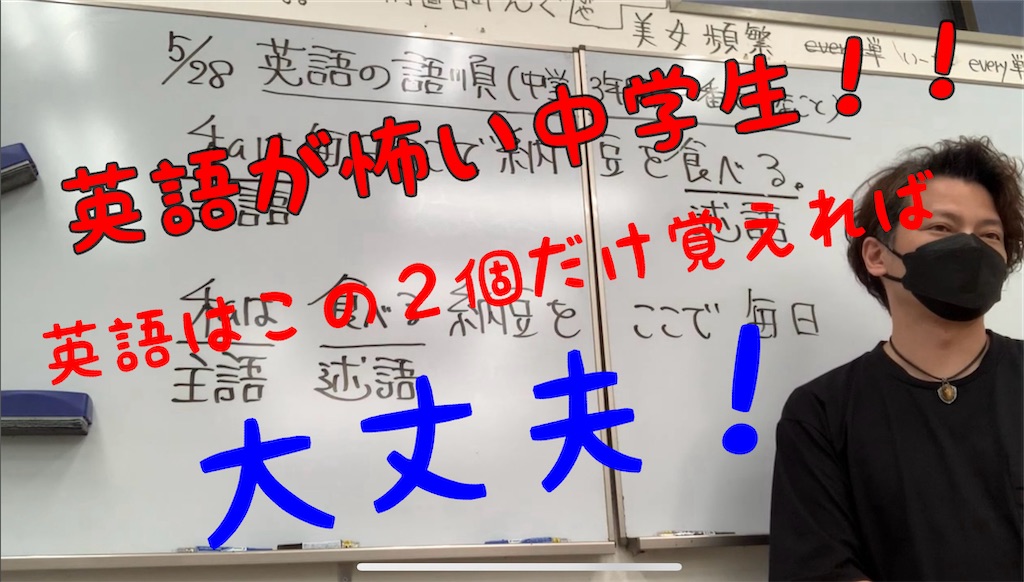 美女頻繁 every単 いー every単
5/28 英語の語順(中学3年
英語が怖い中学生!!
私は毎日ここで納豆を食べる。
主語 述語
英語はこの2個だけ覚えれば
私は 食べる 納豆を ここで 毎日
主語 述語
大丈夫!